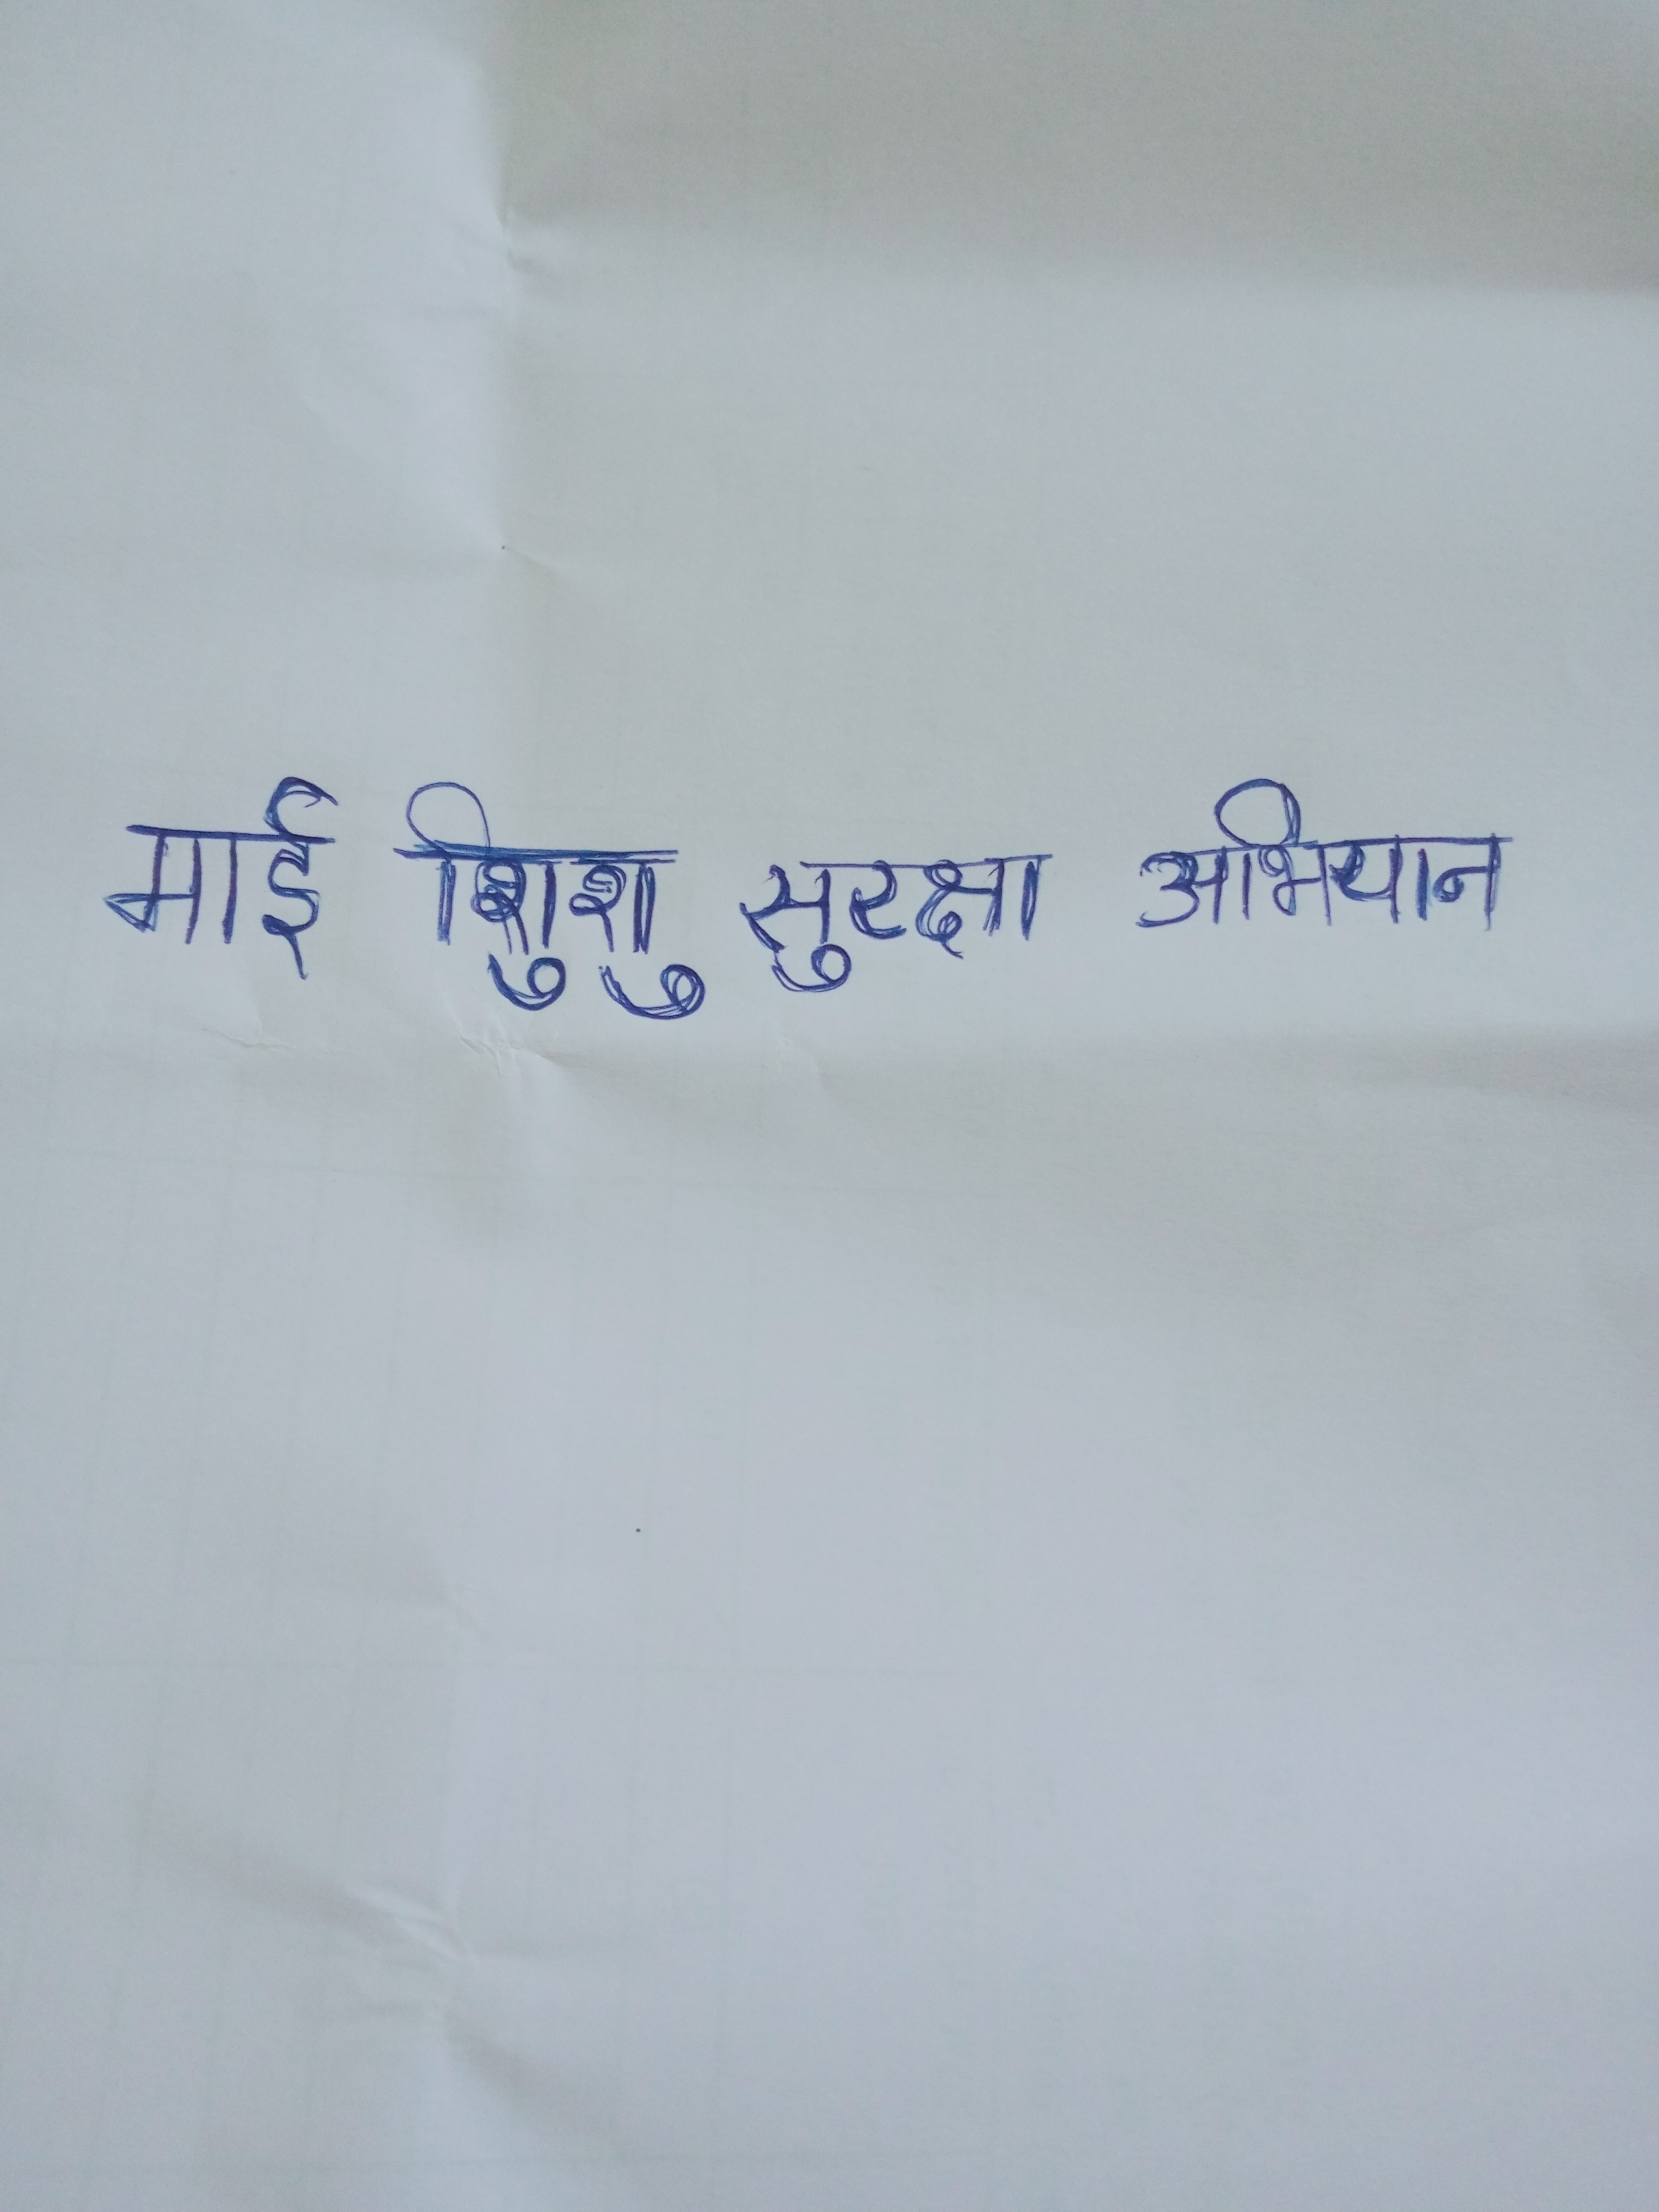 माई शिुशु सुरक्षा अभियान